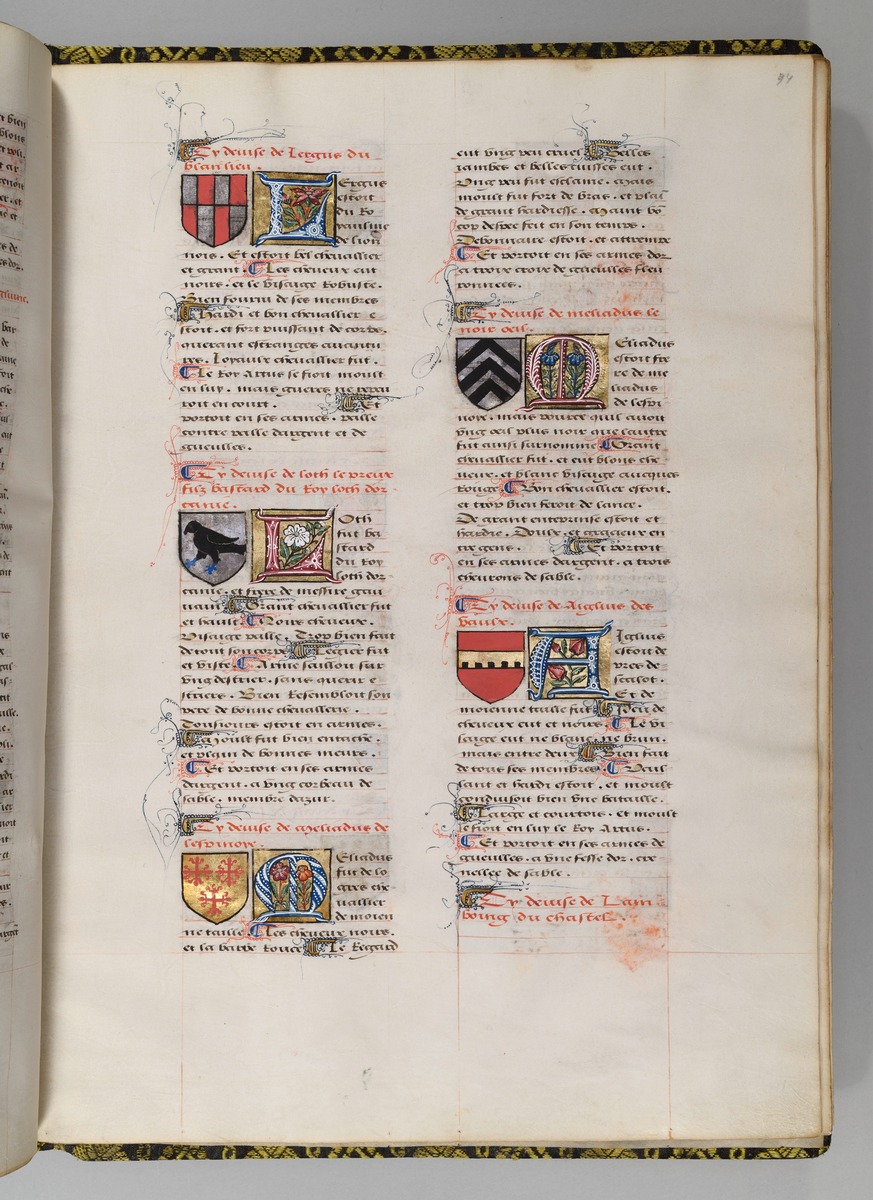 94
Cy devise de Lergus du
blanlieu.
Ergus
estoit
du Ro
yaulme
de lion
nois. Et estoit bel chevallier
et grant. Les cheveux eut
noirs. et le visaige Robuste.
Bien fourni de ses membres
hardi et bon chevallier e
stoit. et fort puissant de corps.
querant estranges avantu
res. Loyaulx chevallier fut.
Le Roy Artus se fioit moult
en luy. mais gueres ne repai
roit en court. Et
portoit en ses armes. palle
contre palle dargent et de
gueulles.
Cy devise de loth le preux
filz bastard du Roy loth dor
canie.
Oth
fut ba
stard
du Roy
loth dor
canie. et frere de messire gau
vain Grant chevallier fut
et hault Noirs cheveux.
Visaige palle. Trop bien fait
de tout son corps Legier fut
et viste Arme sailloit sur
ung destrier. sans querir e
striers. Bien Resembloit son
pere de bonne chevallerie.
Tousiours estoit en armes.
Moult fut bien entache.
et plain de bonnes meurs.
Et portoit en ses armes
dargent. a ung corbeau de
sable. membre dazur.
Cy devise de Meliadus de
lespinoye.
Eliadus
fut de lo
gres che
vallier
de moien
ne taille. Les cheveux noirs.
et la barbe Rouce Le Regard
eut ung peu cruel Belles
jambes et belles cuisses eut.
Ung peu fut esclame. Mais
moult fut fort de bras. et plai
de grant hardiesse. Maint bo
cop despee feit en son temps.
Debonnaire estoit. et attrempe
Et portoit en ses armes dor
a trois croix de gueulles fleu
ronnees.
Cy devise de meliadus le
noir oeil.
Eliadus
estoit fre
re de me
liadus
de lespi
noye. mais pource quil avoit
ung oeil plus noir que laultre
fut ainsi surnomme Grant
chevallier fut. et eut blons che
veux. et blanc visaige aucques
Rouge Bon chevallier estoit.
et trop bien feroit de lance.
De grant entreprinse estoit et
hardie. Doulx. et gracieux en
tre gens. Et portoit
en ses armes dargent. a trois
chevrons de sable.
Cy devise de Aiglius des
vaulx.
Iglius
estoit de
pres de
scalot.
Et de
moienne taille fut Peu de
cheveux eut et noirs. Le vi
saige eut ne blanc. ne brun.
mais entre deux Bien fait
de tous ses membres Vail
lant et hardi estoit. et moult
conduisoit bien une bataille.
Large et courtois. et moult
se fioit en luy le Roy Artus.
Et portoit en ses armes de
gueulles. a une fesse dor. cre
nellee de sable.
Cy devise de Lam
boing du chastel.